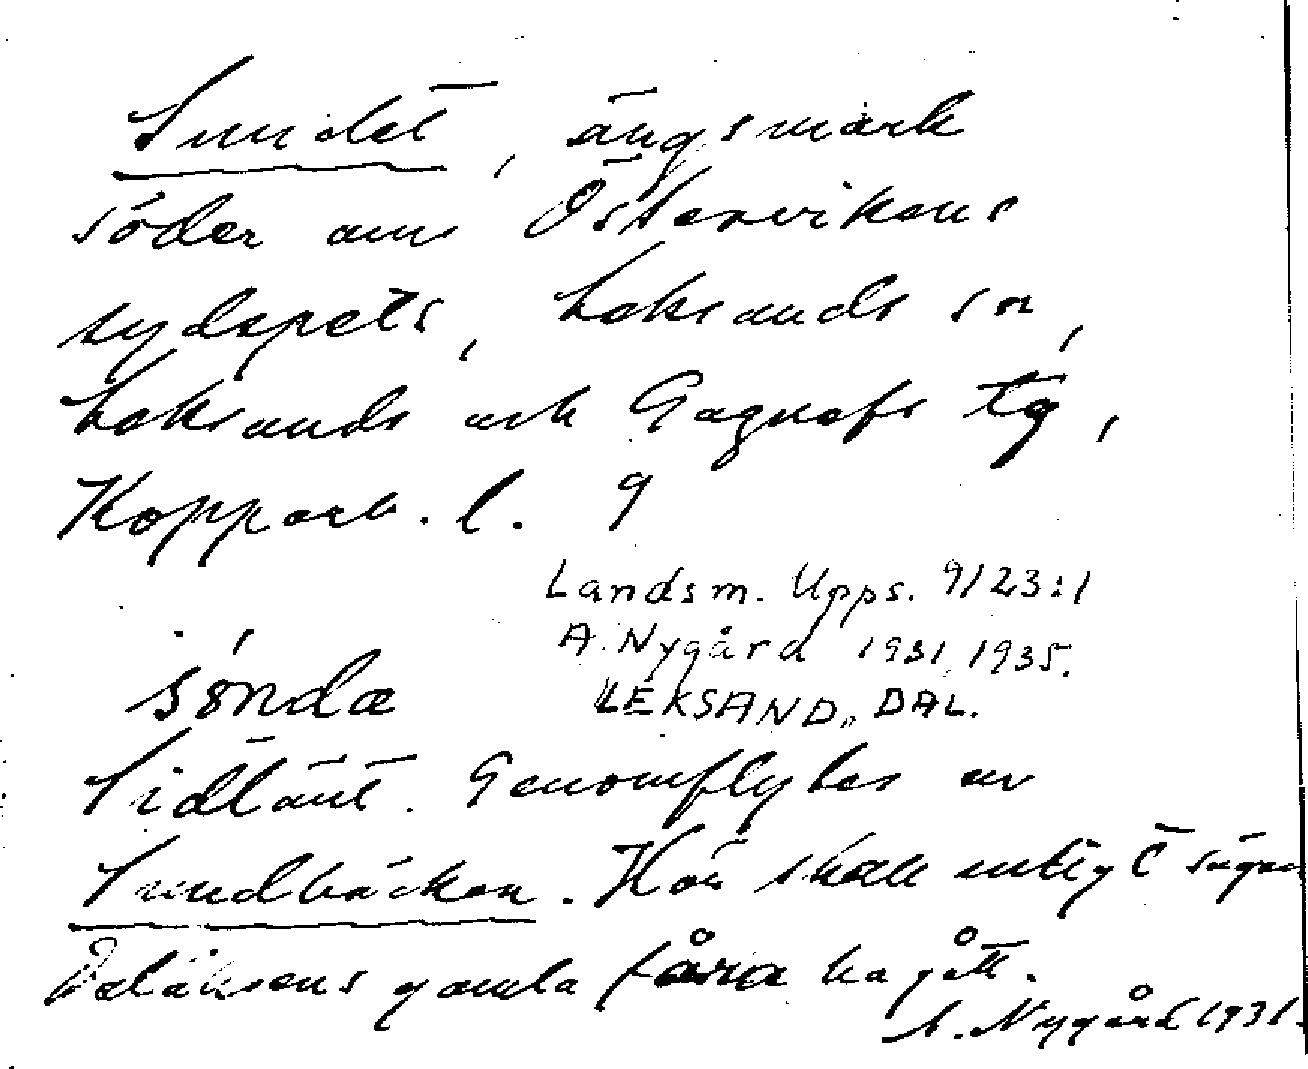 Sundet, ängsmark
söder om Östervikens
sydspets, Leksands sn,
Leksands och Gagnefs tg,
Kopparb. l. 9
Landsm. Upps. 9/23:1
A. Nygård 1931, 1935.
LEKSAND, DAL.
sònda
Sidlänt. Genomflytes av
Sundbäcken. Här skall enligt sägen
Dalälvens gamla fåra ha gått.
A. Nygård 1931.